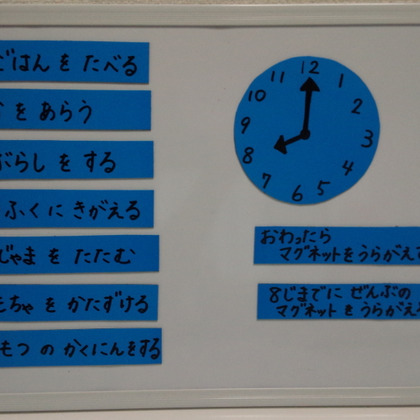 ごはん を たべる
を あらう
ぶらし を する
ふく に きがえる
じゃま を たたむ
ちゃ を かたずける
もつ の かくにんをする
12
1
2
3
4
5
6
7
8
9
10
11
おわったら
マグネットをうらがえす
8じまでに ぜんぶの
マグネット を うらがえ